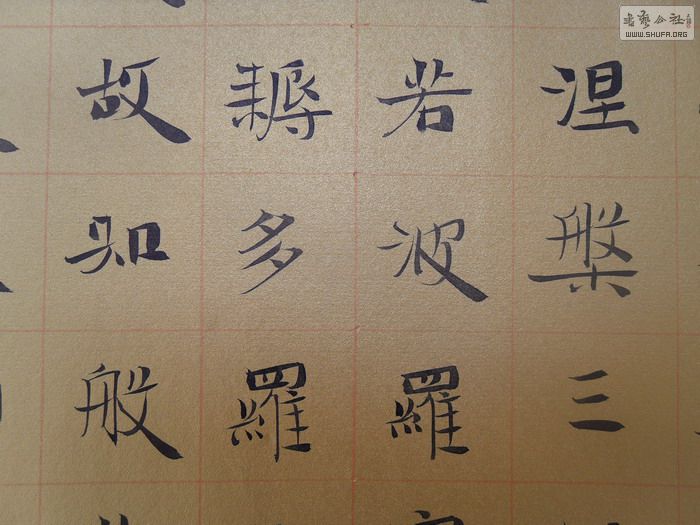 涅槃三
若波羅
耨多羅
故知般
書藝公社
WWW.SHUFA.ORG